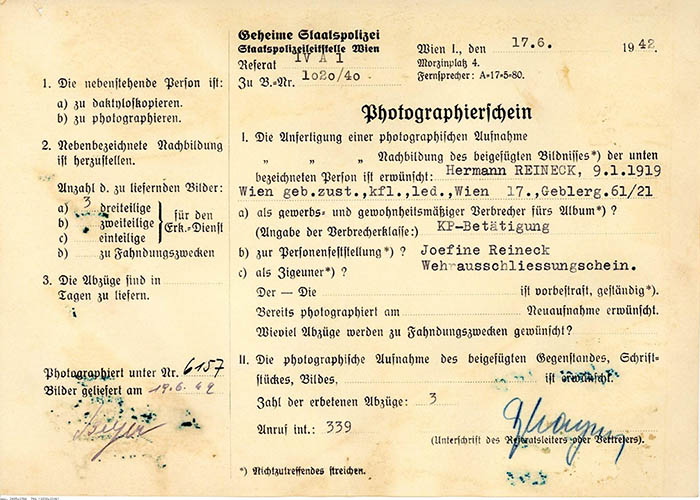 Geheime Staatspolizei
Staatspolizeileitstelle Wien
Referat IV A 1
Zu B.-Nr. 1020/40
Wien I., den 17.6. 1942.
Morzinplatz 4.
Fernsprecher: A=17=5=80.
1. Die nebenstehende Person ist:
a) zu daktyloskopieren.
b) zu photographieren.
2. Nebenbezeichnete Nachbildung
ist herzustellen.
Anzahl d. zu liefernden Bilder:
a) 3 dreiteilige
b) zweiteilige
c) einteilige
für den
Erk.=Dienst
d) zu Fahndungszwecken
3. Die Abzüge sind in
Tagen zu liefern.
Photographiert unter Nr. 6157
Bilder geliefert am 19.6.42
Photographierschein
I. Die Anfertigung einer photographischen Aufnahme
„ „ „ Nachbildung des beigefügten Bildnisses*) der unten
bezeichneten Person ist erwünscht: Hermann REINECK, 9.1.1919
Wien geb.zust.,kfl.,led.,Wien 17.,Geblerg.61/21
a) als gewerbs= und gewohnheitsmäßiger Verbrecher fürs Album*) ?
(Angabe der Verbrecherklasse:) KP-Betätigung
b) zur Personenfeststellung*) ? Joefine Reineck
c) als Zigeuner*) ? Wehrausschliessungschein.
Der — Die ist vorbestraft, geständig*).
Bereits photographiert am Neuaufnahme erwünscht.
Wieviel Abzüge werden zu Fahndungszwecken gewünscht?
II. Die photographische Aufnahme des beigefügten Gegenstandes, Schrift=
stückes, Bildes, ist erwünscht.
Zahl der erbetenen Abzüge: 3
Anruf int.: 339
(Unterschrift des Referatsleiters oder Vertreters).
*) Nichtzutreffendes streichen.